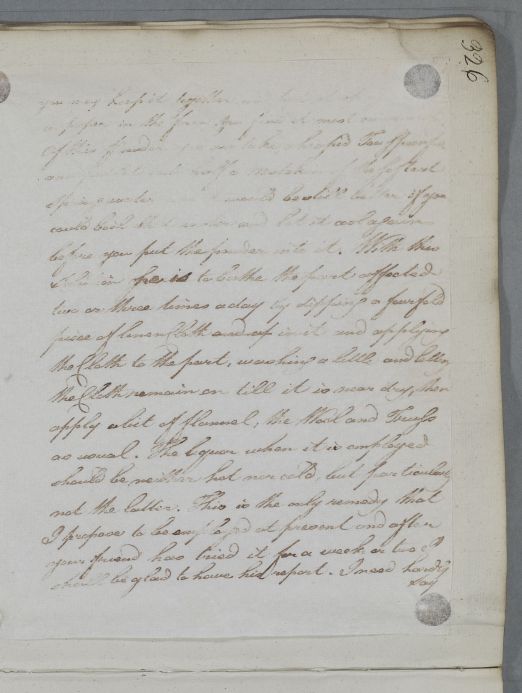 326
you may keep it together
a paper in the form you find it most
of this powder you take a heaped Tea Spoonful
and half a
Spring water would be still better if you
could boil the water and let it cool again
before you put the powder into it. With this
solution he is to bathe the part affected
two or three times a day by dipping a fourfold
piece of Linen Cloth in it and applying
the Cloth to the part, washing a little and letting
the Cloth remain on till it is near dry, then
apply a bit of flannel, the Wool and Truss
as usual. The liquor when it is employed
should be neither hot nor cold, but particularly
not the latter. This is the only remedy that
I propose to be employed at present and after
your friend has tried it for a week or two I
should be glad to have his report. I need hardly
say